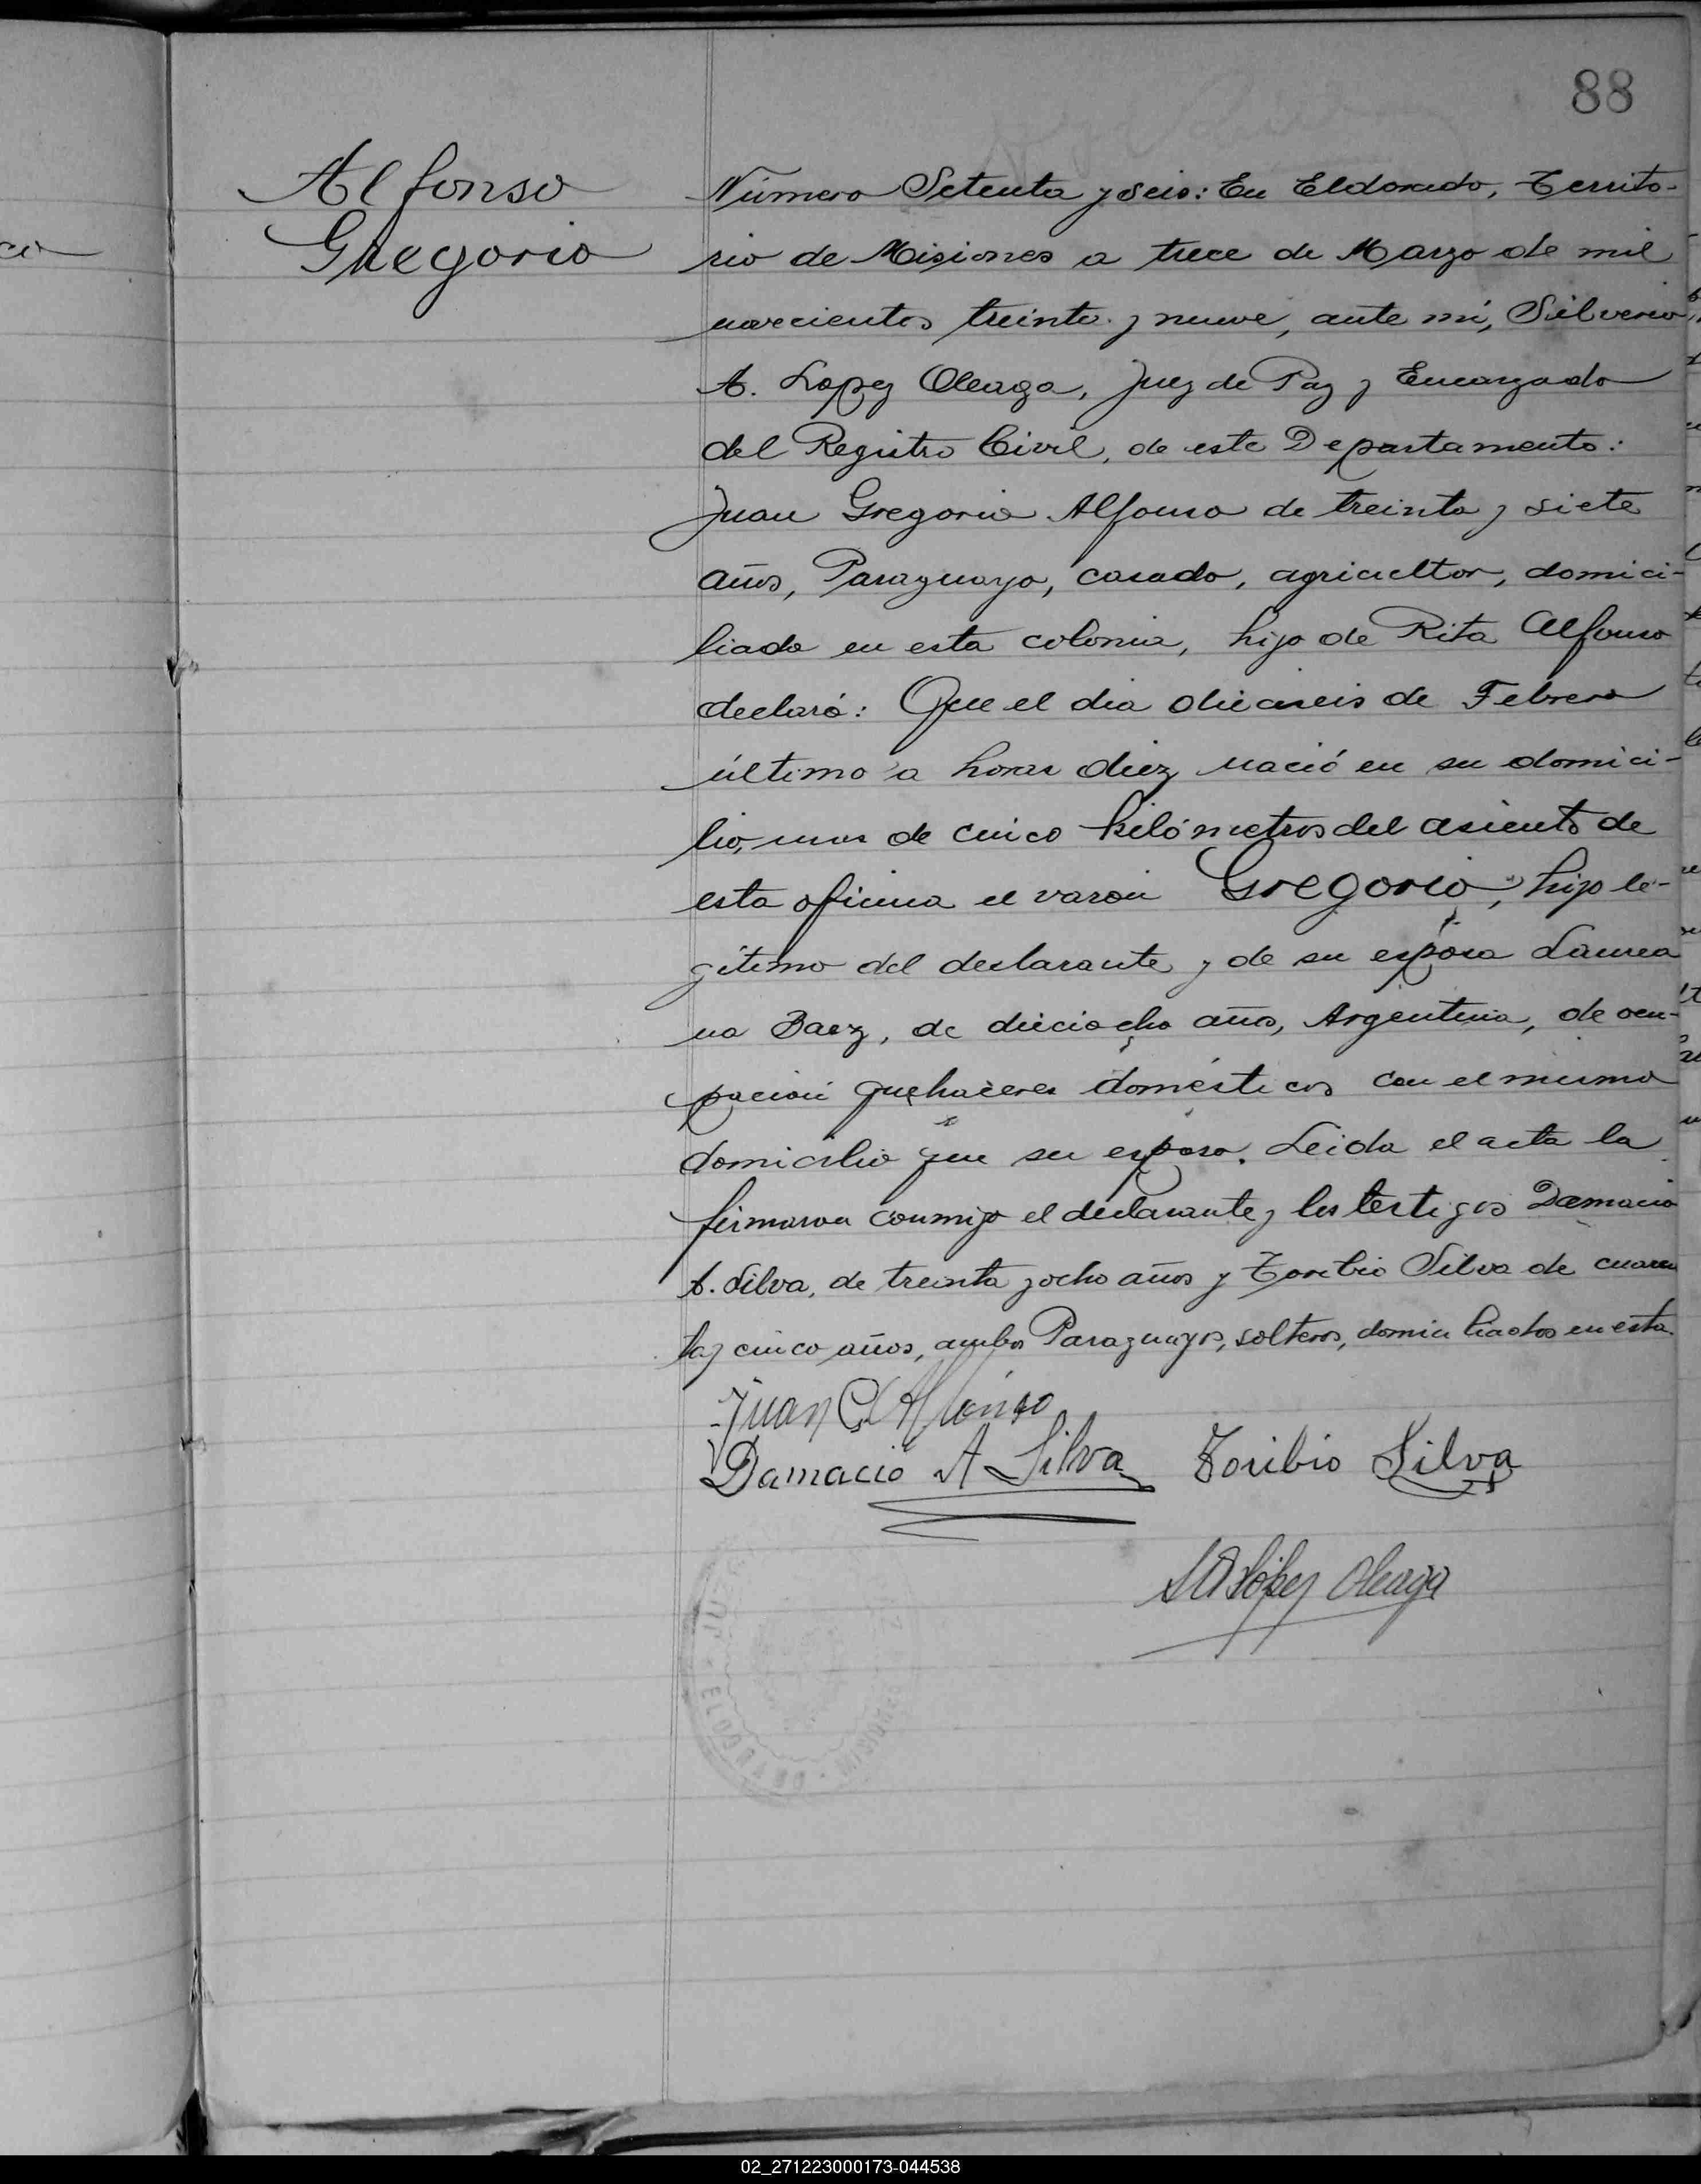 88
Alfonso
Gregorio
Número Setenta y seis: En Eldorado, Territo-
rio de Misiones a trece de Marzo de mil
novecientos treinta y nueve, ante mí, Silverio
A. Lopez Oleaga, Juez de Paz y Encargado
del Registro Civil, de este Departamento:
Juan Gregorio Alfonso de treinta y siete
años, Paraguayo, casado, agricultor, domici-
liado en esta colonia, hijo de Rita Alfonso
declaró: Que el dia dieciseis de Febrero
último a horas diez nació en su domici-
lio, mas de cinco kilómetros del asiento de
esta oficina el varón Gregorio, hijo le-
gitimo del declarante y de su esposa Laurea
na Baez, de dieciocho años, Argentina, de ocu-
pación quehaceres domésticos con el mismo
domicilio que su esposo. Leida el acta la
firmaron conmigo el declarante y los testigos Damacio
A. Silva, de treinta y ocho años y Toribio Silva de cuaren
ta y cinco años, ambos Paraguayos, solteros, domiciliados en esta.
Juan G. Alfonso
Damacio A Silva Toribio Silva
S A López Oleaga
ELDORADO
MISIONES
02_271223000173-044538